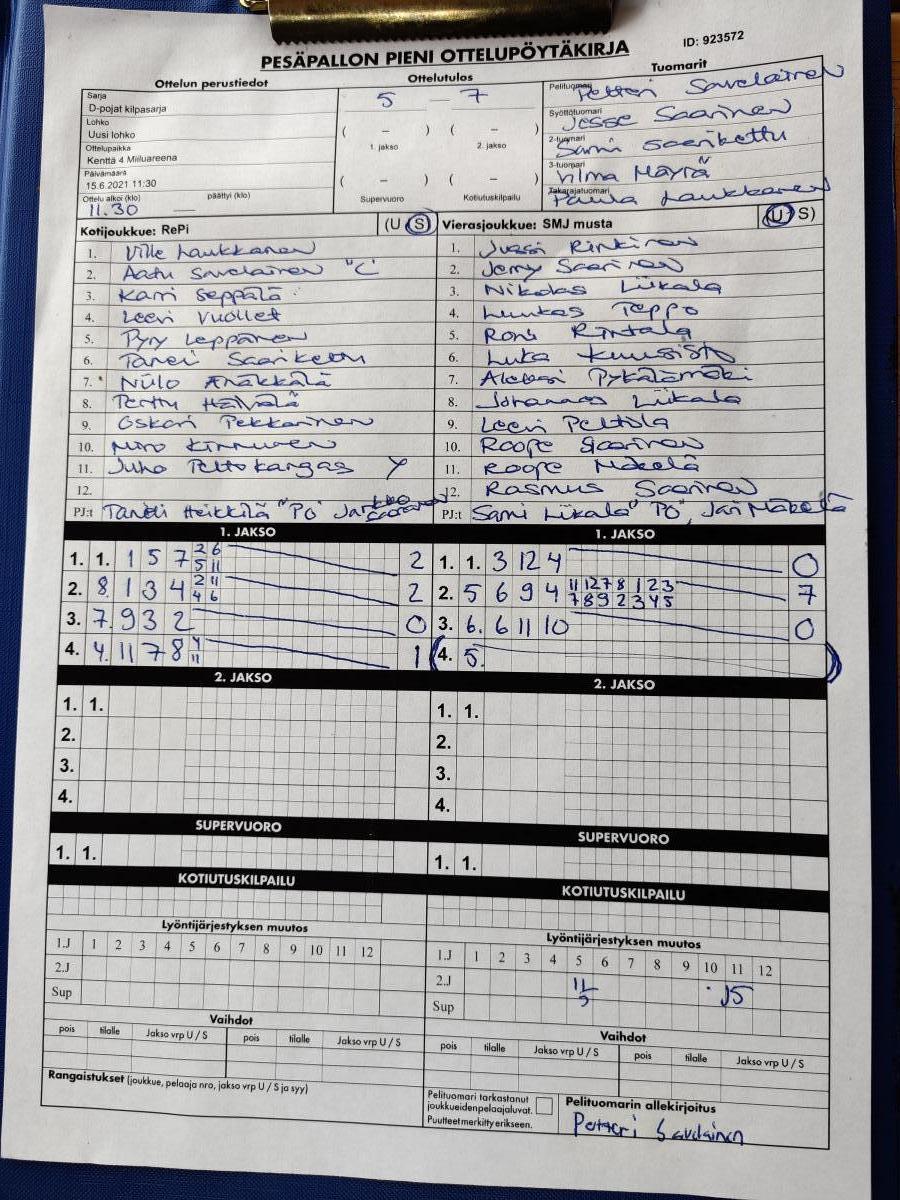 PESÄPALLON PIENI OTTELUPÖYTÄKIRJA
ID: 923572
Ottelun perustiedot
Sarja
D-pojat kilpasarja
Lohko
Uusi lohko
Ottelupaikka
Kenttä 4 Miiluareena
Päivämäärä
15.6.2021 11:30
Ottelu alkoi (klo) päättyi (klo)
11.30 —
Ottelutulos
5 — 7
( – ) ( – )
1. jakso 2. jakso
( – ) ( – )
Supervuoro Kotiutuskilpailu
Tuomarit
Pelituomari Petteri Savolainen
Syöttötuomari Jesse Saarinen
2-tuomari Sami Saarikettu
3-tuomari Vilma Mäyrä
Takarajatuomari Paula Laukkanen
Kotijoukkue: RePi (U S)
1. Ville Laukkanen
2. Aatu Savolainen "C"
3. Karri Seppälä
4. Leevi Vuollet
5. Pyry Leppänen
6. Taneli Saarikettu
7. Niilo Anäkkälä
8. Perttu Häivälä
9. Oskari Pekkarinen
10. Miro Kinnunen
11. Juho Peltokangas Y
12.
PJ:t Taneli Heikkilä "PO"
Vierasjoukkue: SMJ musta (U S)
1. Jussi Rinkinen
2. Jeremy Saarinen
3. Nikolas Liikala
4. Luukas Teppo
5. Roni Rintala
6. Luka Kuusisto
7. Aleksi Pykälämäki
8. Johannes Liikala
9. Leevi Peltola
10. Roope Saarinen
11. Roope Mäkelä
12. Rasmus Saarinen
PJ:t Sami Liikala "PO", Jari Mäkelä
1. JAKSO
1. 1. 1 5 7 2 6 5 11 2
2. 8. 1 3 4 2 11 4 6 2
3. 7. 9 3 2 0
4. 4. 11 7 8 4 11 1
1. JAKSO
1. 1. 3 12 4 0
2. 5 6 9 4 11 12 7 8 1 2 3 7 8 9 2 3 4 5 7
3. 6. 6 11 10 0
(4. 5. )
2. JAKSO
1. 1.
2.
3.
4.
2. JAKSO
1. 1.
2.
3.
4.
SUPERVUORO
1. 1.
SUPERVUORO
1. 1.
KOTIUTUSKILPAILU
KOTIUTUSKILPAILU
Lyöntijärjestyksen muutos
1.J 1 2 3 4 5 6 7 8 9 10 11 12
2.J
Sup
Lyöntijärjestyksen muutos
1.J 1 2 3 4 5 6 7 8 9 10 11 12
2.J 11 5
Sup
Vaihdot
pois tilalle Jakso vrp U / S pois tilalle Jakso vrp U / S
Vaihdot
pois tilalle Jakso vrp U / S pois tilalle Jakso vrp U / S
Rangaistukset (joukkue, pelaaja nro, jakso vrp U / S ja syy)
Pelituomari tarkastanut
joukkueidenpelaajaluvat.
Puutteet merkitty erikseen.
Pelituomarin allekirjoitus
Petteri Savolainen